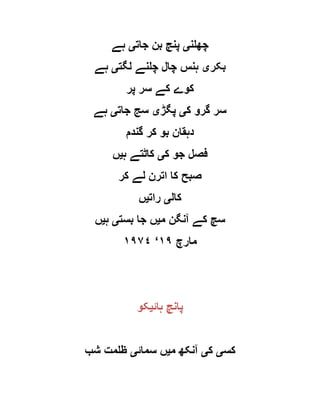 چھلنی پنچ بن جاتی ہے
بکری ہنس چال چلنے لگتی ہے
کوے کے سر پر
سر گرو کی پگڑی سج جاتی ہے
دہقان بو کر گندم
فصل جو کی کاٹتے ہیں
صبح کا اترن لے کر
کالی راتیں
سچ کے آنگن میں جا بستی ہیں
مارچ ١٩، ١٩٧٤
پانچ ہائیکو
کسی کی آنکھ میں سمائی ظلمت شب